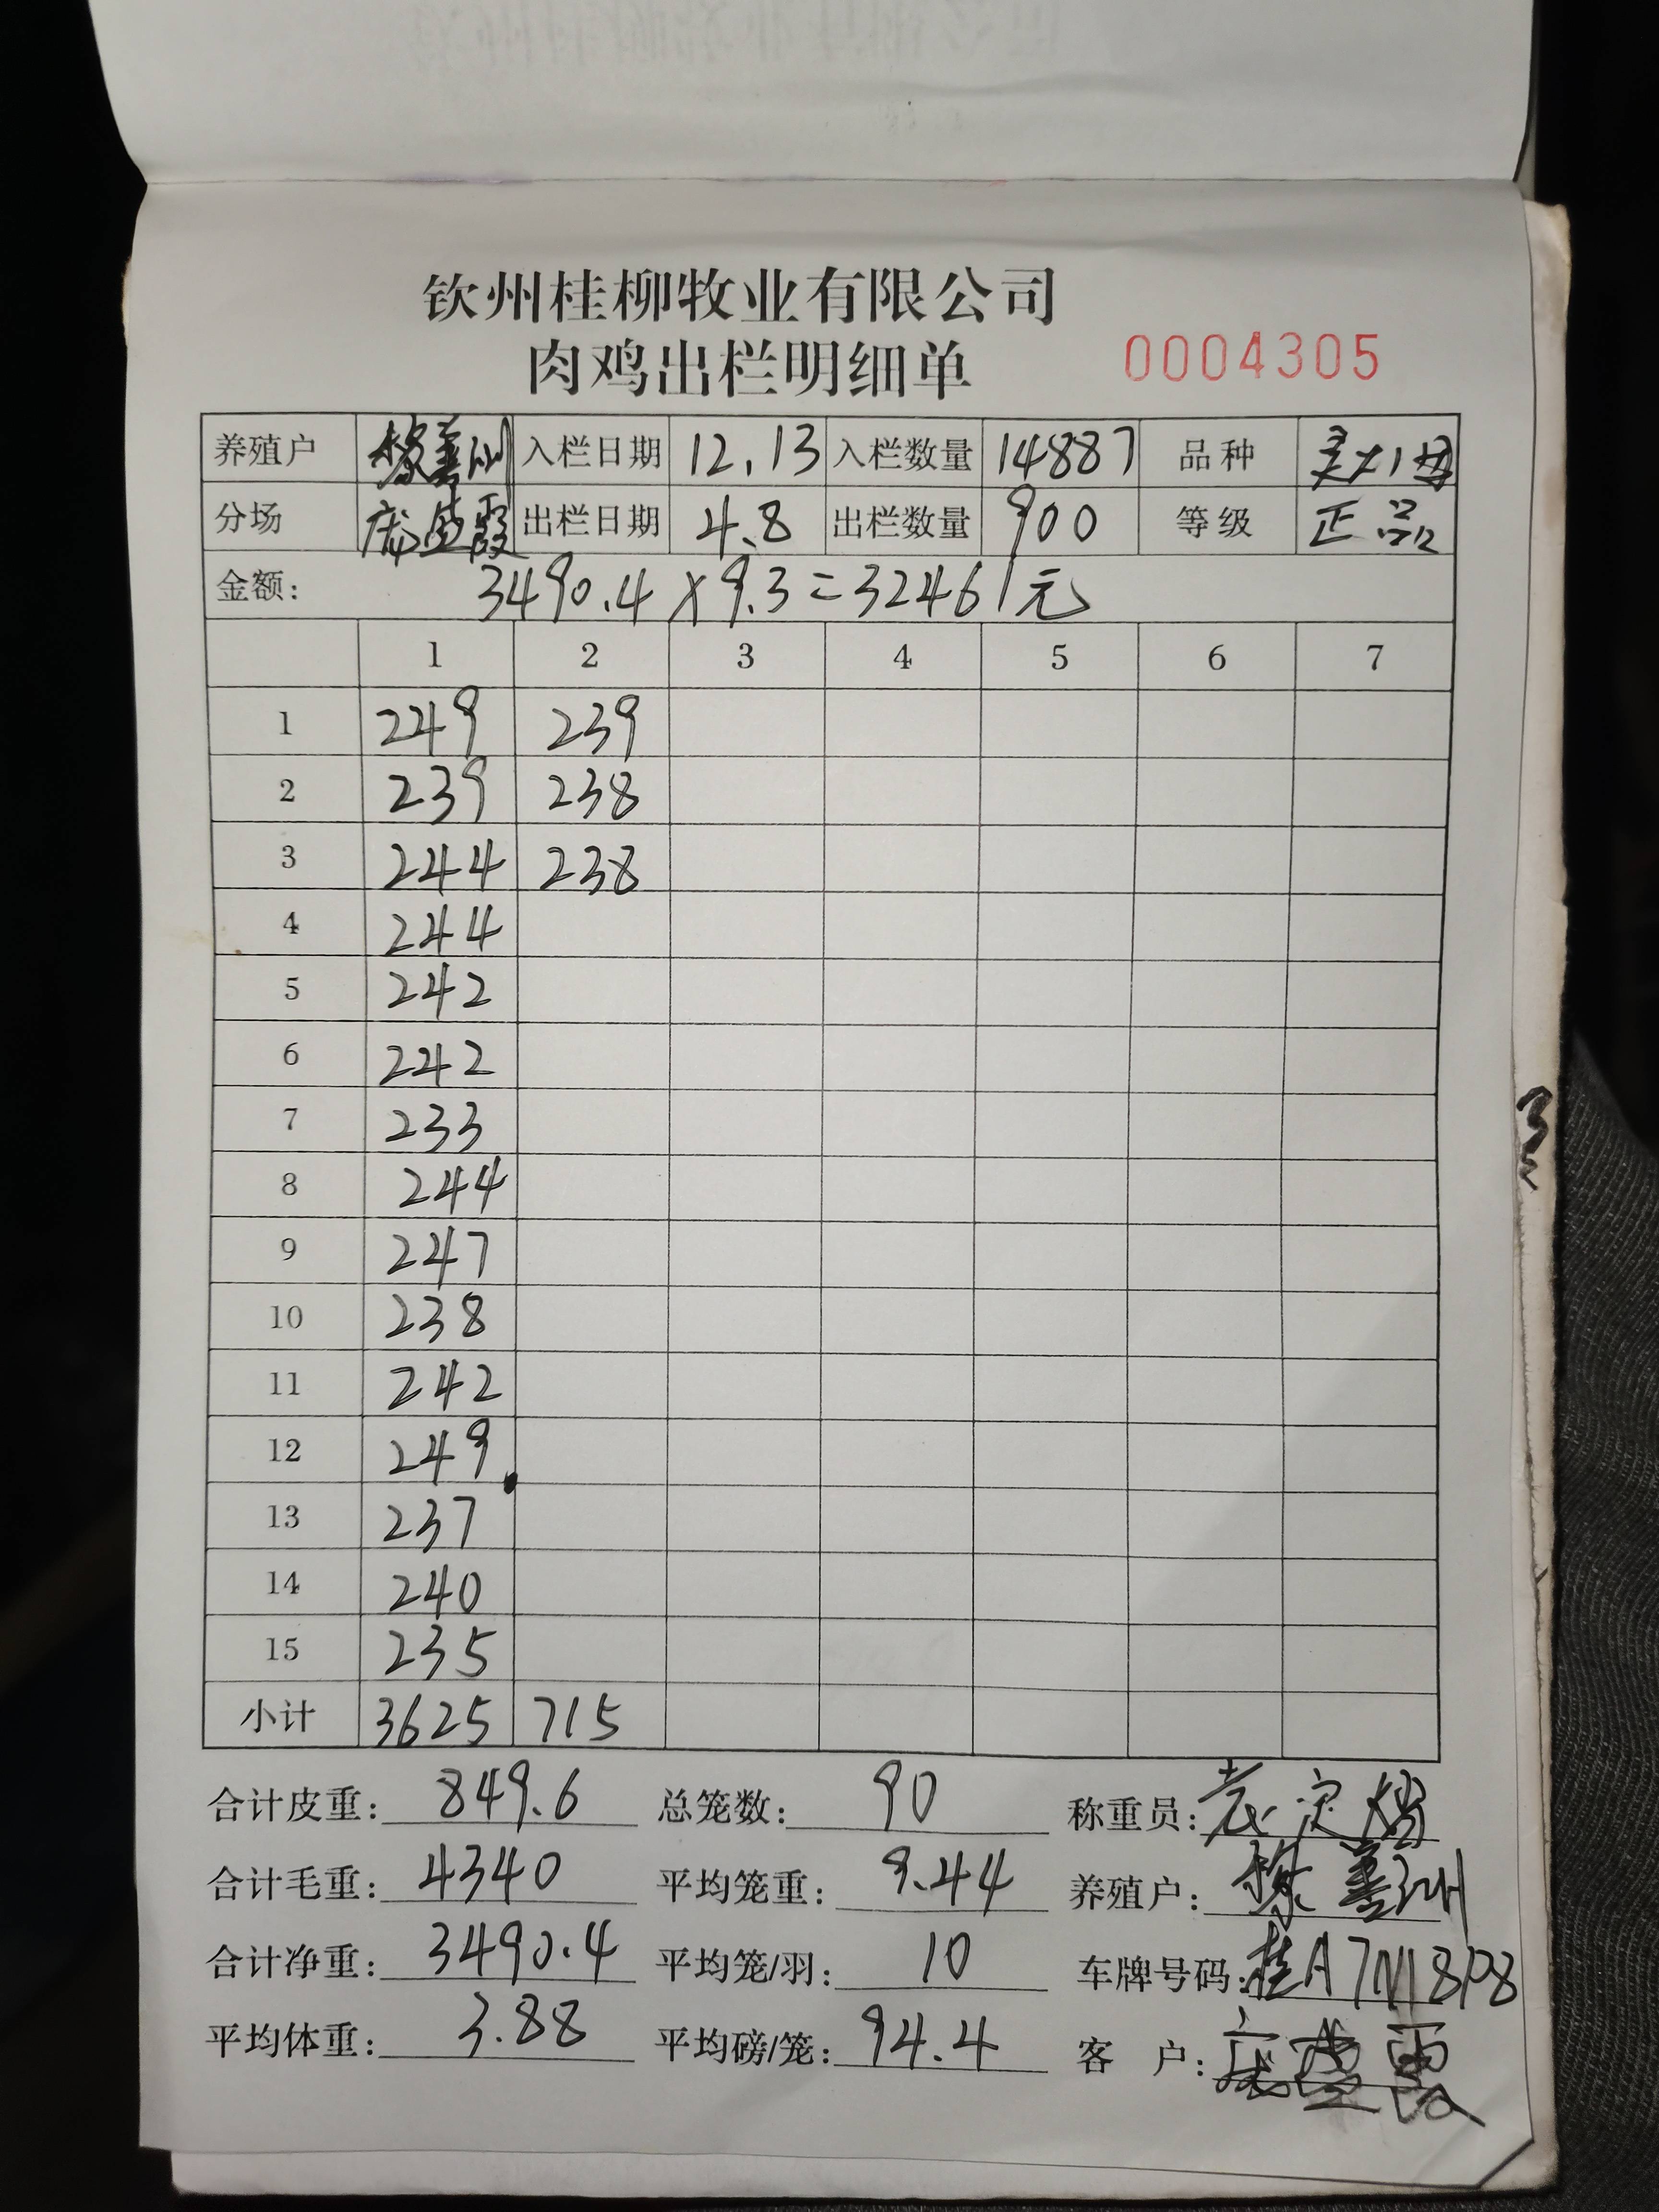 钦州桂柳牧业有限公司
肉鸡出栏明细单 0004305
养殖户 入栏日期 12.13 入栏数量 14887 品种
分场 庞盛霞 出栏日期 4.8 出栏数量 900 等级 正品
金额: 3490.4×9.3=32461元
1 2 3 4 5 6 7
1 249 239
2 239 238
3 244 238
4 244
5 242
6 242
7 233
8 244
9 247
10 238
11 242
12 249
13 237
14 240
15 235
小计 3625 715
合计皮重: 849.6 总笼数: 90 称重员:
合计毛重: 4340 平均笼重: 9.44 养殖户:
合计净重: 3490.4 平均笼/羽: 10 车牌号码: 桂A7N18P8
平均体重: 3.88 平均磅/笼: 94.4 客户: 庞盛霞